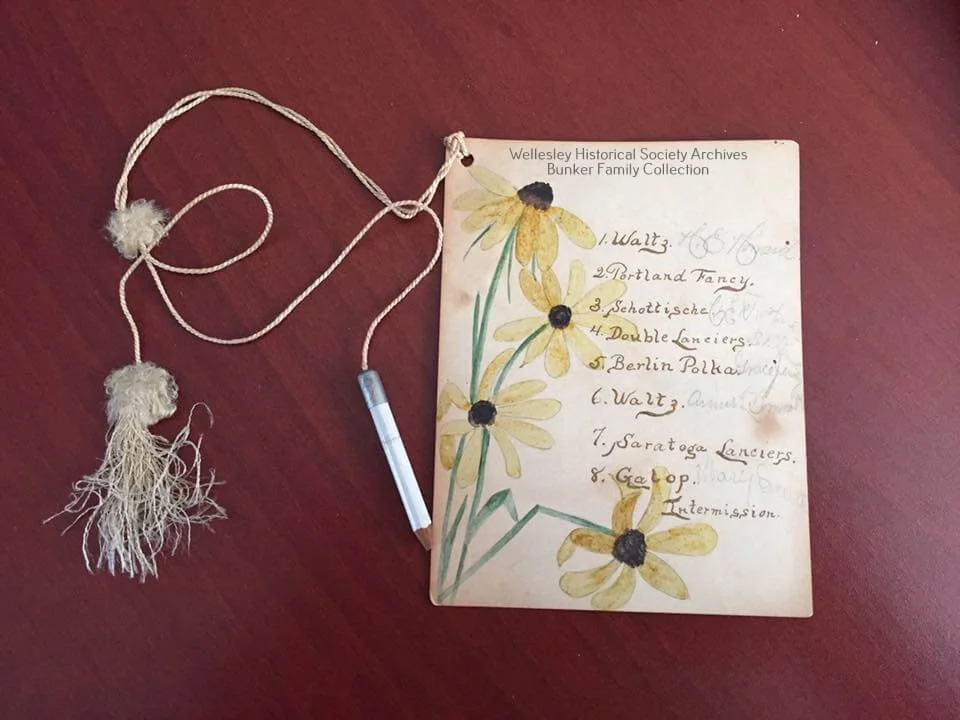 Wellesley Historical Society Archives
Bunker Family Collection
1. Waltz. H. E. 
2. Portland Fancy.
3. Schottische
4. Double Lanciers.
5. Berlin Polka.
6. Waltz.
7. Saratoga Lanciers.
8. Galop. Mary
Intermission.